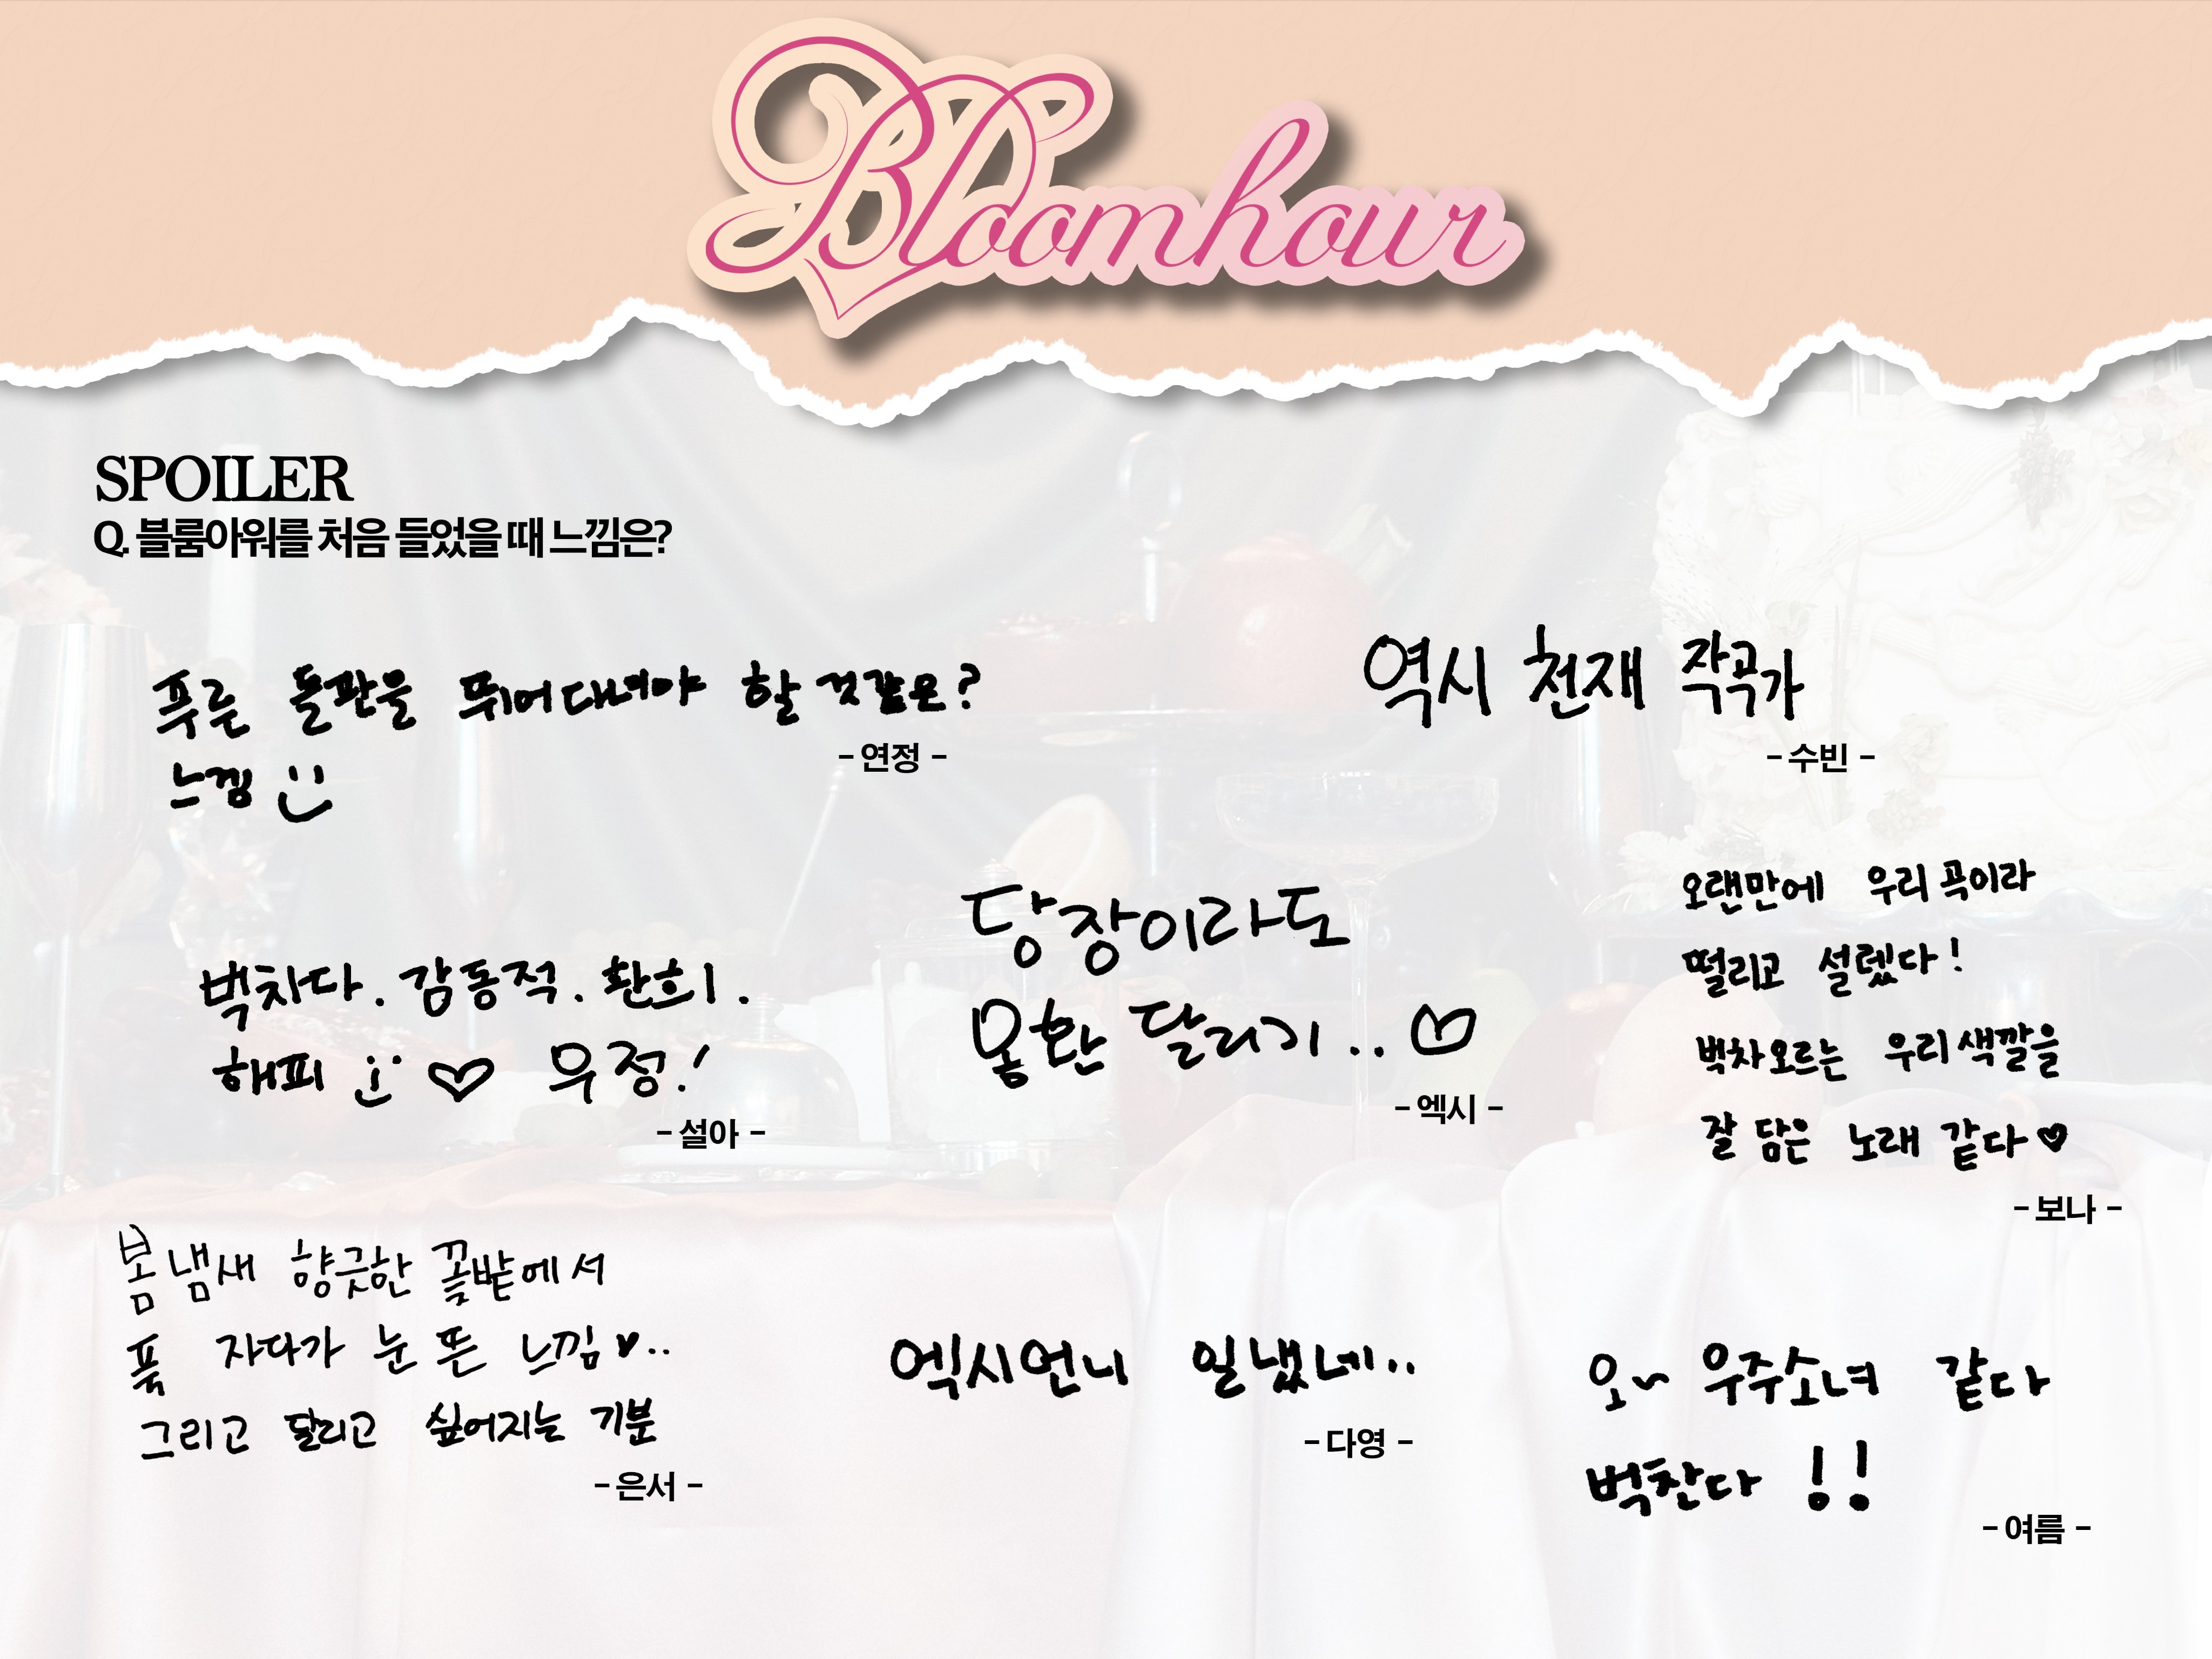 Bloomhour
SPOILER
Q. 블룸아워를 처음 들었을 때 느낌은?
푸른 들판을 뛰어다녀야 할 것같은?
느낌
- 연정 -
역시 천재 작곡가
- 수빈 -
벅차다. 감동적. 환희.
해피 우정!
- 설아 -
당장이라도
달리기..
- 엑시 -
오랜만에 우리 곡이라
떨리고 설렜다!
벅차오르는 우리 색깔을
잘 담은 노래 같다
- 보나 -
봄 냄새 향긋한 꽃밭에서
푹 자다가 눈 뜬 느낌..
그리고 달리고 싶어지는 기분
- 은서 -
엑시언니 일냈네..
- 다영 -
오~ 우주소녀 같다
벅찬다 !!
- 여름 -